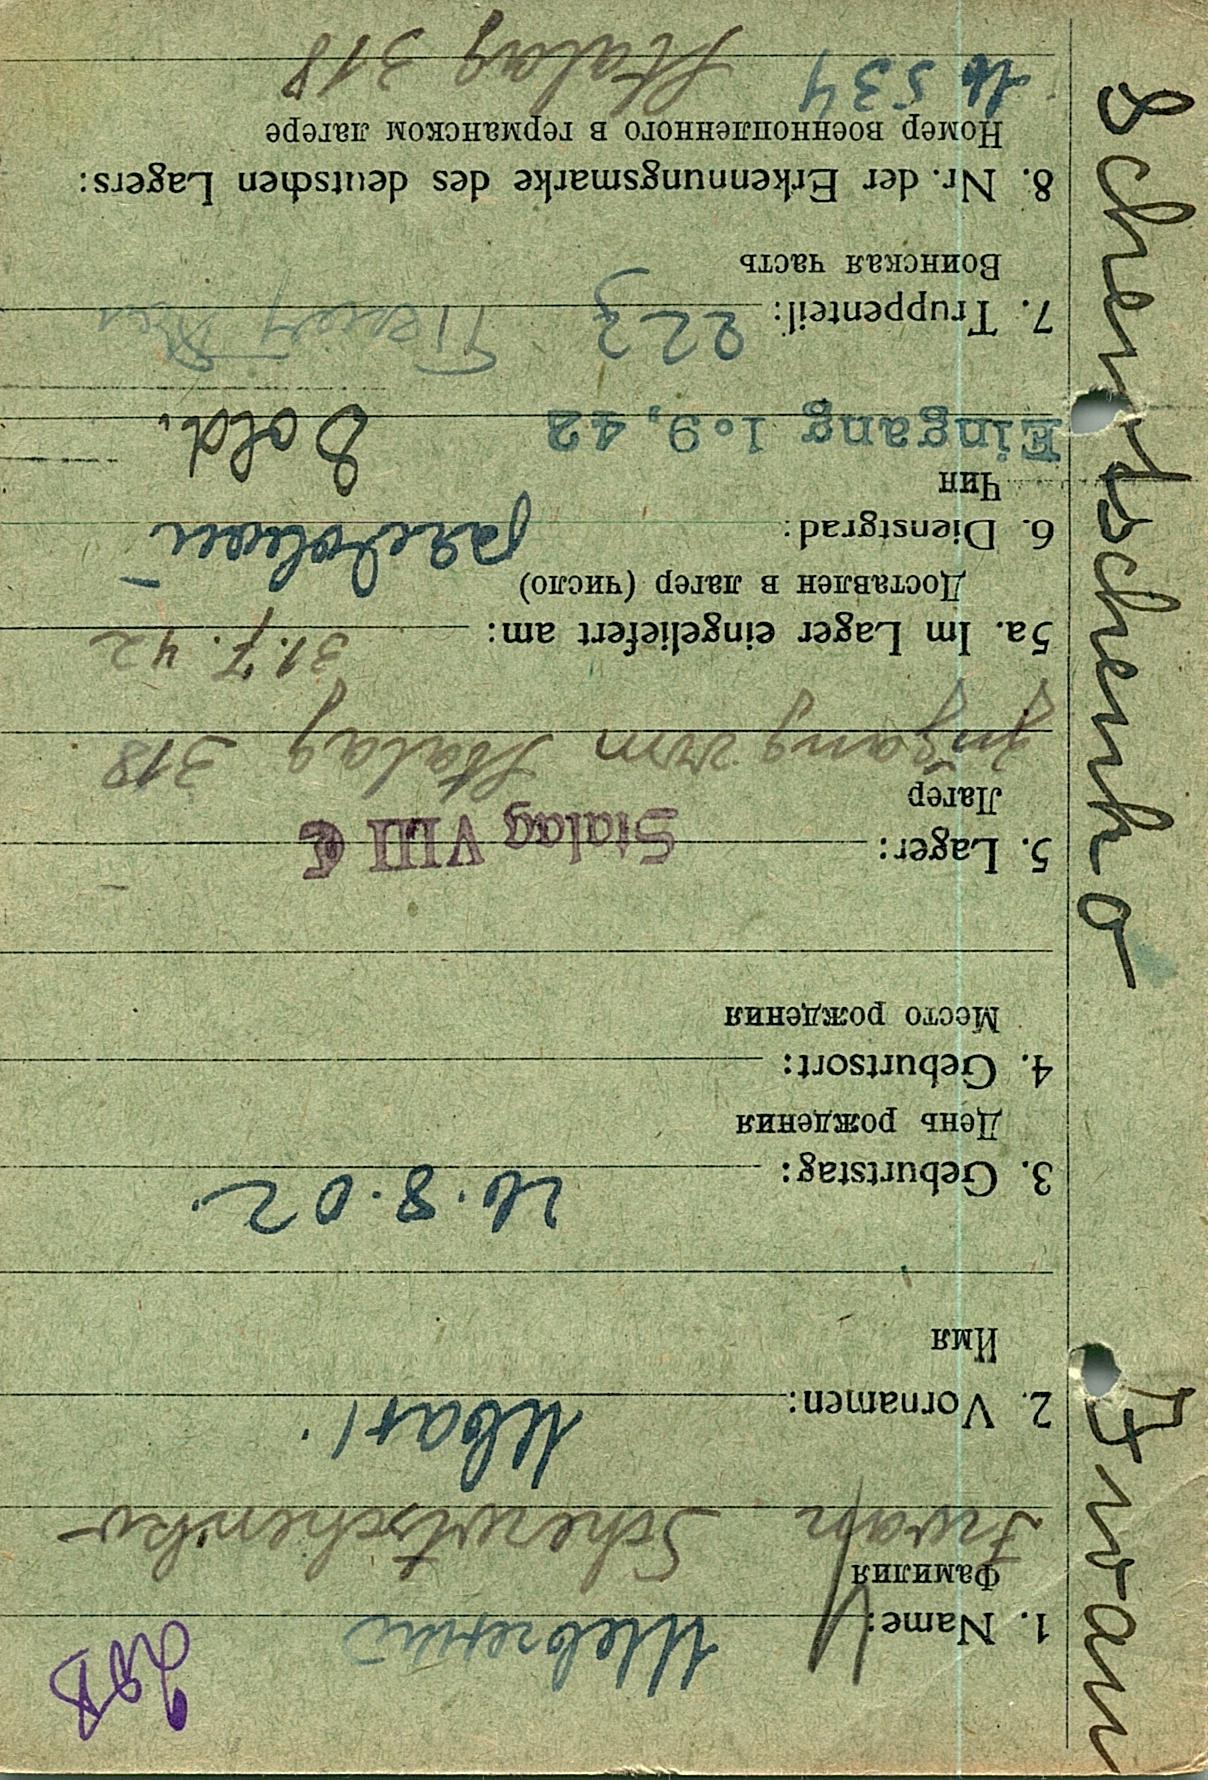 208
1. Name: Шевченко
Фамилия
Iwan Schewtschenko
2. Vornamen: Иван
Имя
3. Geburtstag: 26.8.02
День рождения
4. Geburtsort:
Место рождения
5. Lager: Stalag VIII C
Лагер
Zugang vom Stalag 318
5a. Im Lager eingeliefert am: 31.7.42
Доставлен в лагер (число)
6. Dienstgrad: рядовой
Чин
Eingang 1.9.42 Sold.
7. Truppenteil: 223
Воинская часть
8. Nr. der Erkennungsmarke des deutschen Lagers:
Номер военнопленного в германском лагере
534 Stalag 318
Schewtschenko Iwan